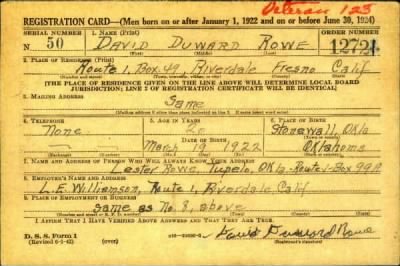 Veteran 123
REGISTRATION CARD—(Men born on or after January 1, 1922 and on or before June 30, 1924)
SERIAL NUMBER 1. NAME (Print) ORDER NUMBER
N 50 DAVID DUWARD ROWE 12721
2. PLACE OF RESIDENCE (Print)
Route 1, Box 49 Riverdale Fresno Calif
[THE PLACE OF RESIDENCE GIVEN ON THE LINE ABOVE WILL DETERMINE LOCAL BOARD
JURISDICTION; LINE 2 OF REGISTRATION CERTIFICATE WILL BE IDENTICAL]
3. MAILING ADDRESS
Same
[Mailing address if other than place indicated on line 2. If same insert word same]
4. TELEPHONE 5. AGE IN YEARS 6. PLACE OF BIRTH
None 20 Stonewall, Okla
DATE OF BIRTH
March 19 1922 Oklahoma
7. NAME AND ADDRESS OF PERSON WHO WILL ALWAYS KNOW YOUR ADDRESS
Lester Rowe Tupelo, Okla. Route 1 - Box 99A
8. EMPLOYER'S NAME AND ADDRESS
L. E. Williamson, Route 1, Riverdale Calif.
9. PLACE OF EMPLOYMENT OR BUSINESS
same as No. 8, above
I AFFIRM THAT I HAVE VERIFIED ABOVE ANSWERS AND THAT THEY ARE TRUE.
D. S. S. Form 1
(Revised 6-1-42) (over) David Duward Rowe
(Registrant's signature)